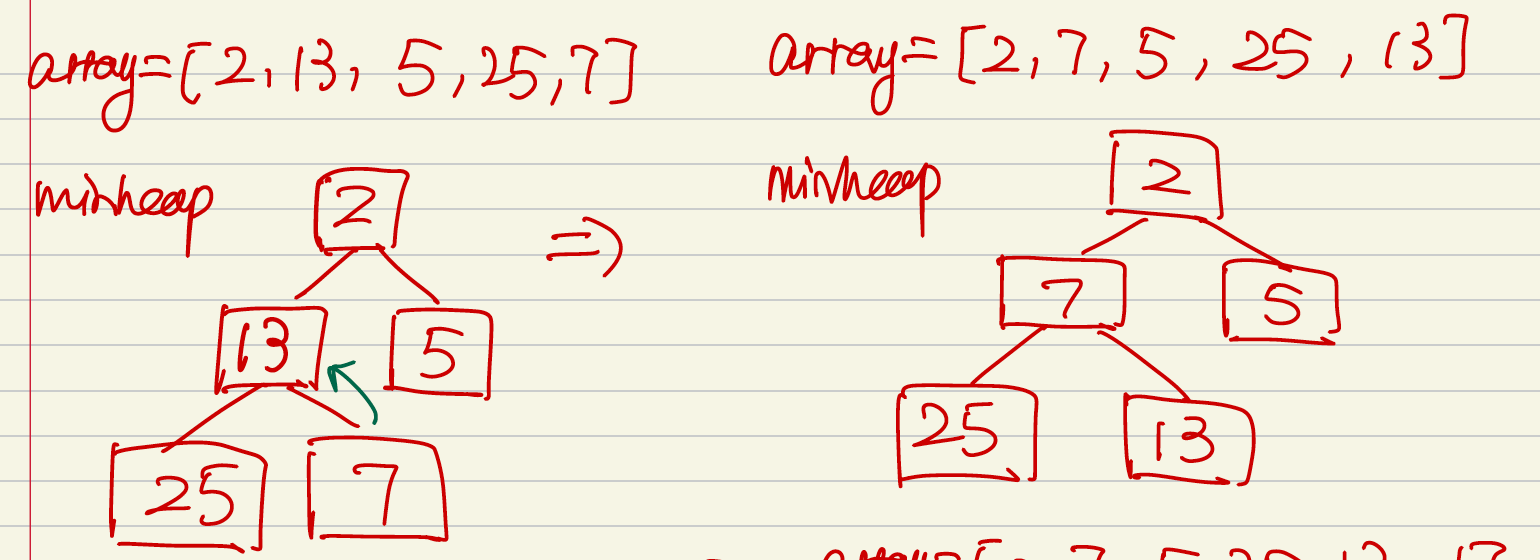 array=[2,13, 5,25,7]
minheap
2
13 5
25 7
=>
array=[2,7,5,25,13]
minheap
2
7 5
25 13